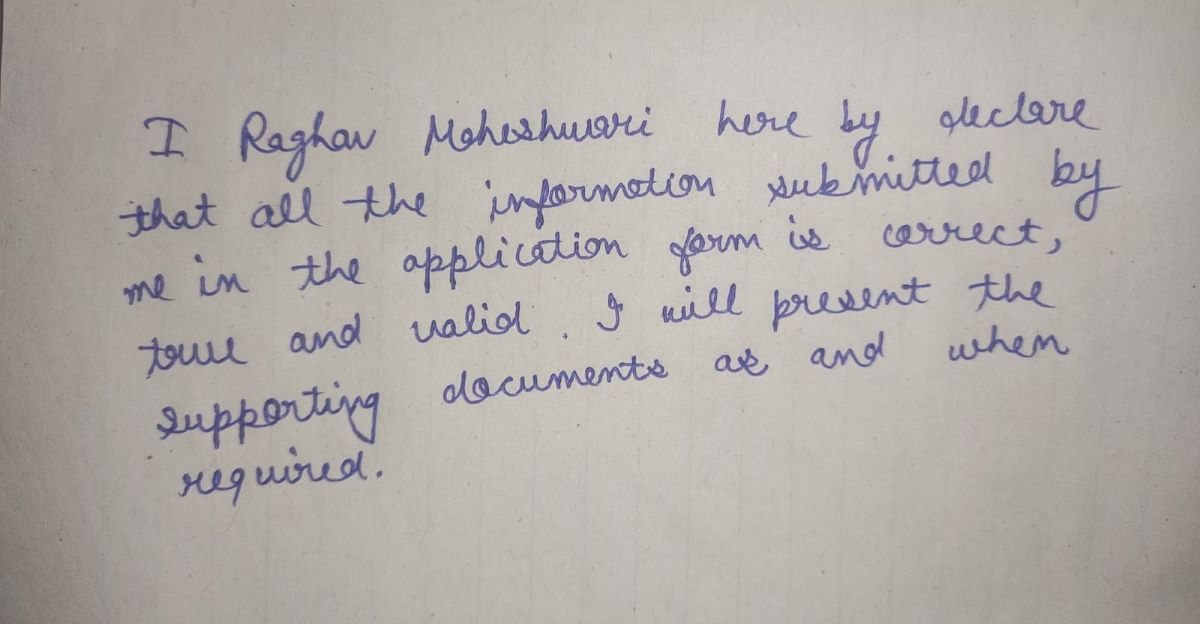 I Raghav Maheshwari here by declare
that all the information submitted by
me in the application form is correct,
true and valid. I will present the
supporting documents as and when
required.